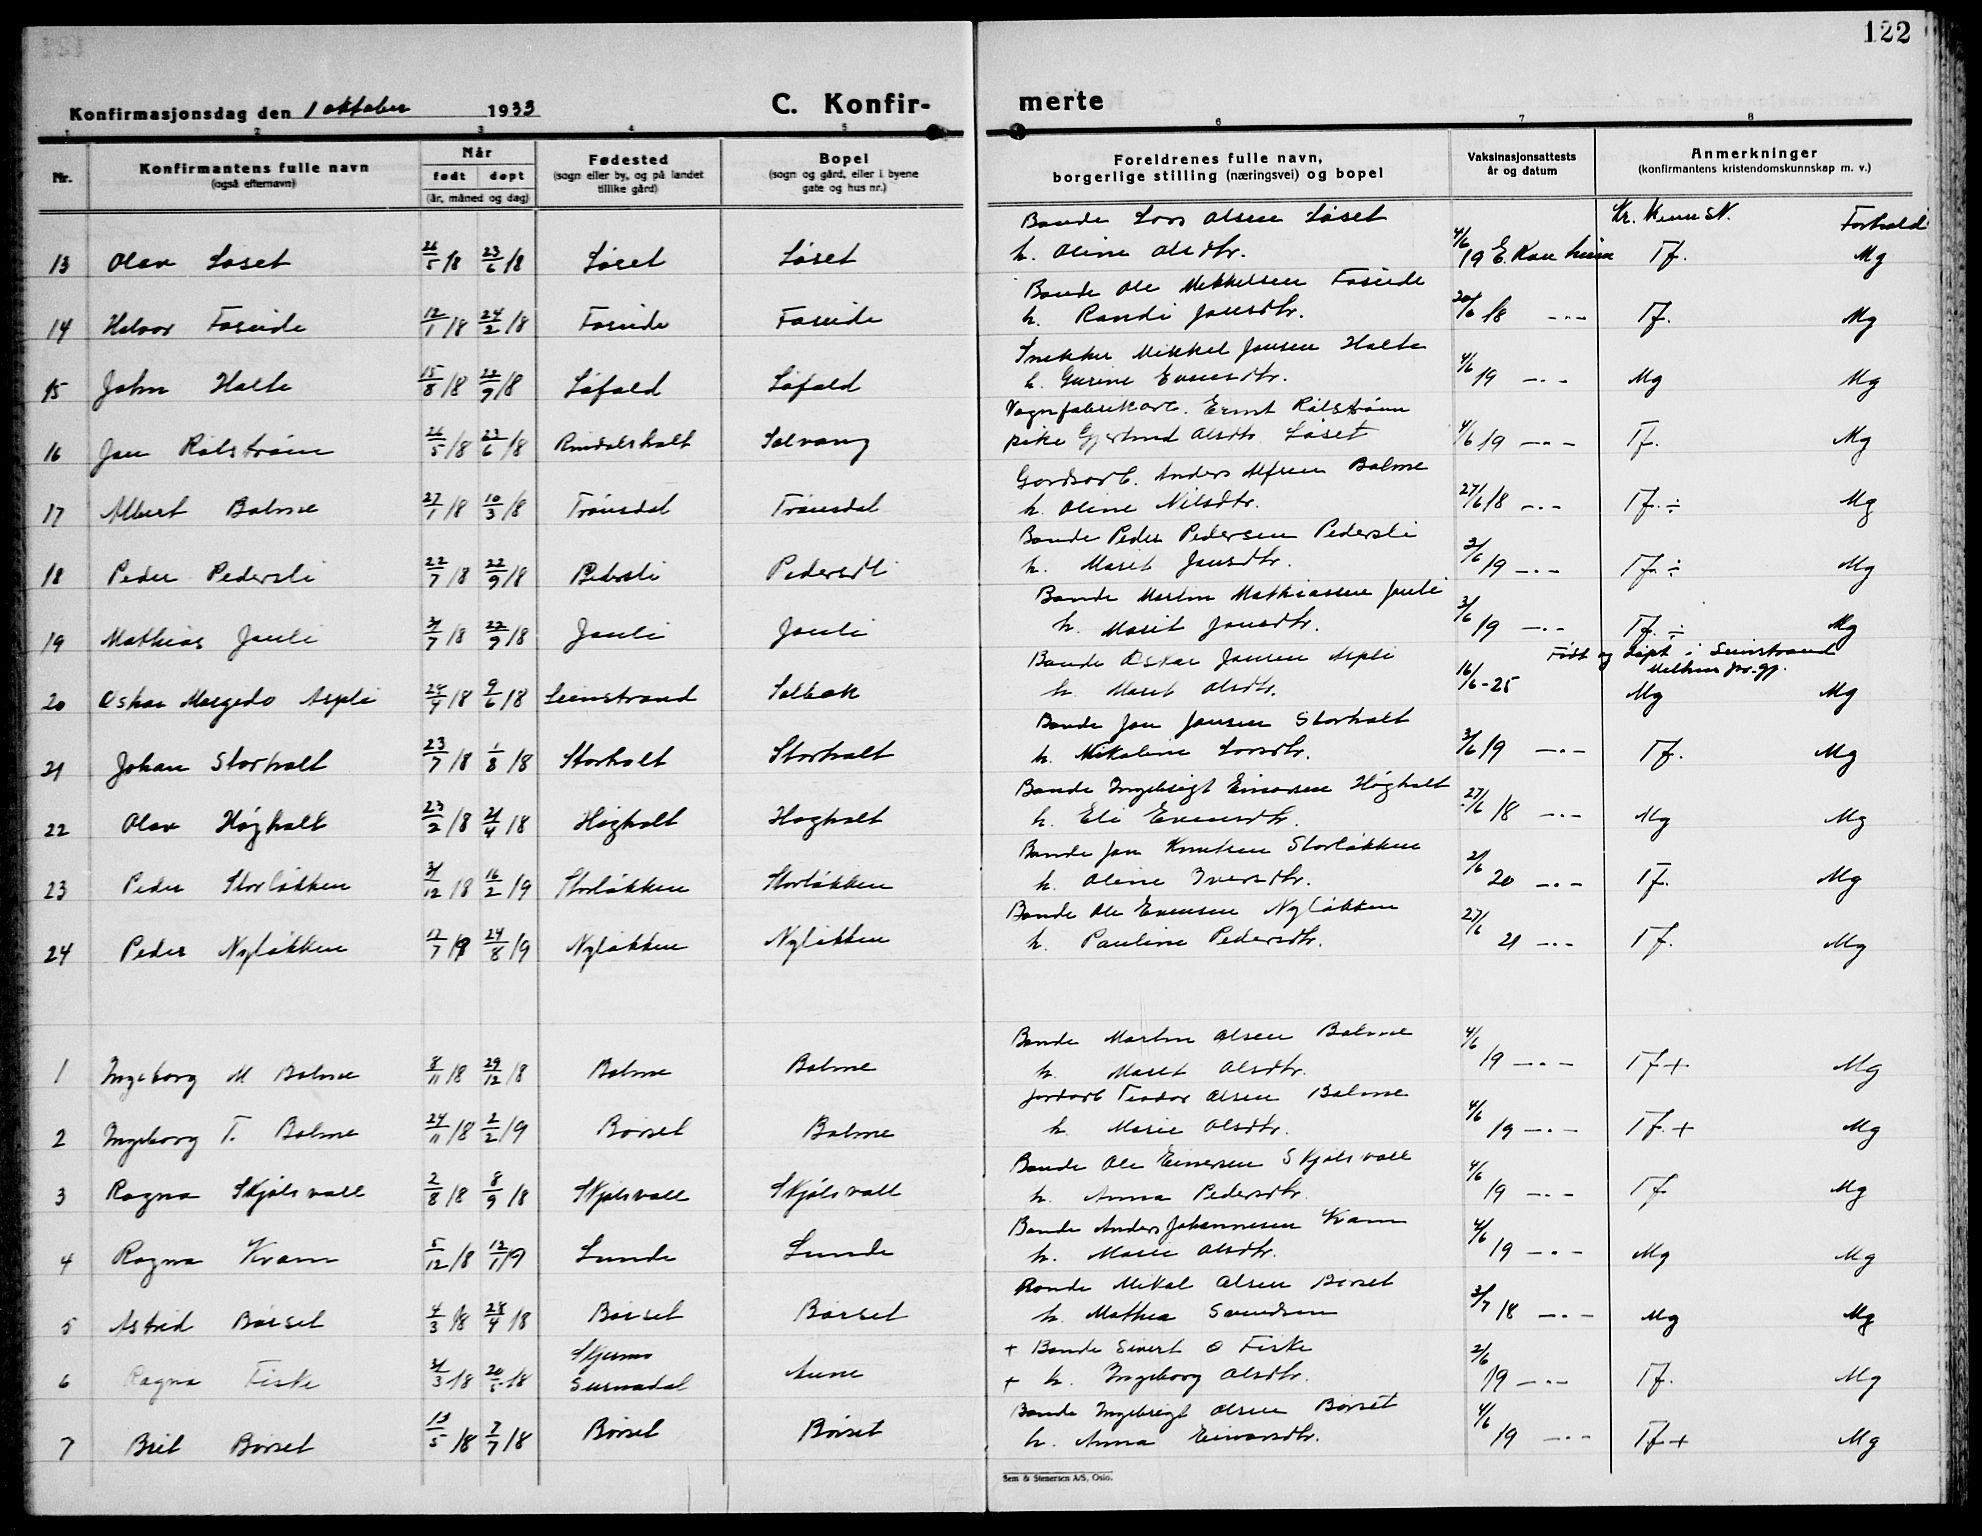 122
Konfirmasjonsdag den 1 oktober 1933
C. Konfir-
merte
1 2 3 4 5 6 7 8
Nr.
Konfirmantens fulle navn
(også efternavn)
Når
født døpt
(år, måned og dag)
Fødested
(sogn eller by, og på landet
tillike gård)
Bopel
(sogn og gård, eller i byene
gate og hus nr.)
Foreldrenes fulle navn,
borgerlige stilling (næringsvei) og bopel
Vaksinasjonsattests
år og datum
Anmerkninger
(konfirmantens kristendomskunnskap m. v.)
Bonde Lars Olsen Løset Kr. Forhold
13 Olav Løset 26/5 18 23/6 18 Løset Løset h. Oline Olsdtr. 4/6 19 Tf. Mg
Bonde Ole Mikkelsen Foseide
14 Halvor Foseide 12/1 18 24/2 18 Foseide Foseide h. Randi Jonsdtr. 20/6 18 -"- Tf. Mg
Snekker Mikkel Jonsen Holte
15 John Holte 15/8 18 22/9 18 Løfald Løfald h. Gurine Evensdtr. 4/6 19 -"- Mg Mg
Vognfabrikarb. Ernst Rålstrøm
16 Jon Rålstrøm 26/5 18 23/6 18 Rindalsholt Solvang pike Gjertrud Olsdtr. Løset 4/6 19 -"- Tf. Mg
Gardsarb. Anders Balme
17 Albert Bolme 27/1 18 10/3 18 Trønsdal Trønsdal h. Oline Nilsdtr. 27/6 18 -"- Tf. ÷ Mg
Bonde Peder Pedersen Pedersli
18 Peder Pedersli 22/7 18 22/9 18 Pedersli Pedersli h. Marit Jonsdtr. 3/6 19 -"- Tf. ÷ Mg
Bonde Martin Mathiassen Jonli
19 Mathias Jonli 31/7 18 22/9 18 Jonli Jonli h. Marit Jonsdtr. 3/6 19 -"- Tf. ÷ Mg
Bonde Oskar Jonsen Aspli Født og døpt i Leinstrand
Melhus pr.gj.
20 Oskar Margido Aspli 24/4 18 9/6 18 Leinstrand Solbak h. Marit Olsdtr. 16/6-25 Mg Mg
Bonde Jon Jonsen Storholt
21 Johan Storholt 23/7 18 1/8 18 Storholt Storholt h. Mikaline Larsdtr. 3/6 19 -"- Tf. Mg
Bonde Ingebrigt Einarsen Høgholt
22 Olav Høgholt 23/2 18 21/4 18 Høgholt Høgholt h. Eli Evensdtr. 27/6 18 -"- Mg Mg
Bonde Jon Knutsen Storløkken
23 Peder Storløkken 31/12 18 16/2 19 Storløkken Storløkken h. Oline Iversdtr. 2/6 20 -"- Tf. Mg
Bonde Ole Evensen Nyløkken
24 Peder Nyløkken 17/7 19 24/8 19 Nyløkken Nyløkken h. Pauline Pedersdtr. 27/6 21 -"- Tf. Mg
Bonde Martin Olsen Bolme
1 Ingeborg M Bolme 8/11 18 29/12 18 Bolme Bolme h. Marit Olsdtr. 4/6 19 -"- Tf + Mg
Jordarb Teodor Olsen Bolme
2 Ingeborg T. Bolme 24/11 18 2/2 19 Børset Bolme h. Marie Olsdtr. 4/6 19 -"- Tf. + Mg
Bonde Ole Einersen Skjølsvoll
3 Ragna Skjølsvoll 2/8 18 8/9 18 Skjølsvoll Skjølsvoll h. Anna Pedersdtr. 4/6 19 -"- Tf Mg
Bonde Anders Johannesen Kvam
4 Ragna Kvam 5/12 18 12/1 19 Lunde Lunde h. Marie Olsdtr. 4/6 19 -"- Mg Mg
Bonde Mikal Olsen Børset
5 Astrid Børset 4/3 18 28/4 18 Børset Børset h. Mathea Svendsen 3/7 18 -"- Mg Mg
Skjermo + Bonde Sivert O Fiske
6 Ragna Fiske 31/3 18 20/5 18 Surnadal Aune + h. Ingeborg Olsdtr. 2/6 19 -"- Tf. Mg
Bonde Ingebrigt Olsen Børset
7 Brit Børset 13/5 18 7/7 18 Børset Børset h. Anna Einarsdtr. 4/6 19 -"- Tf + Mg
Sem & Stenersen A/S, Oslo.